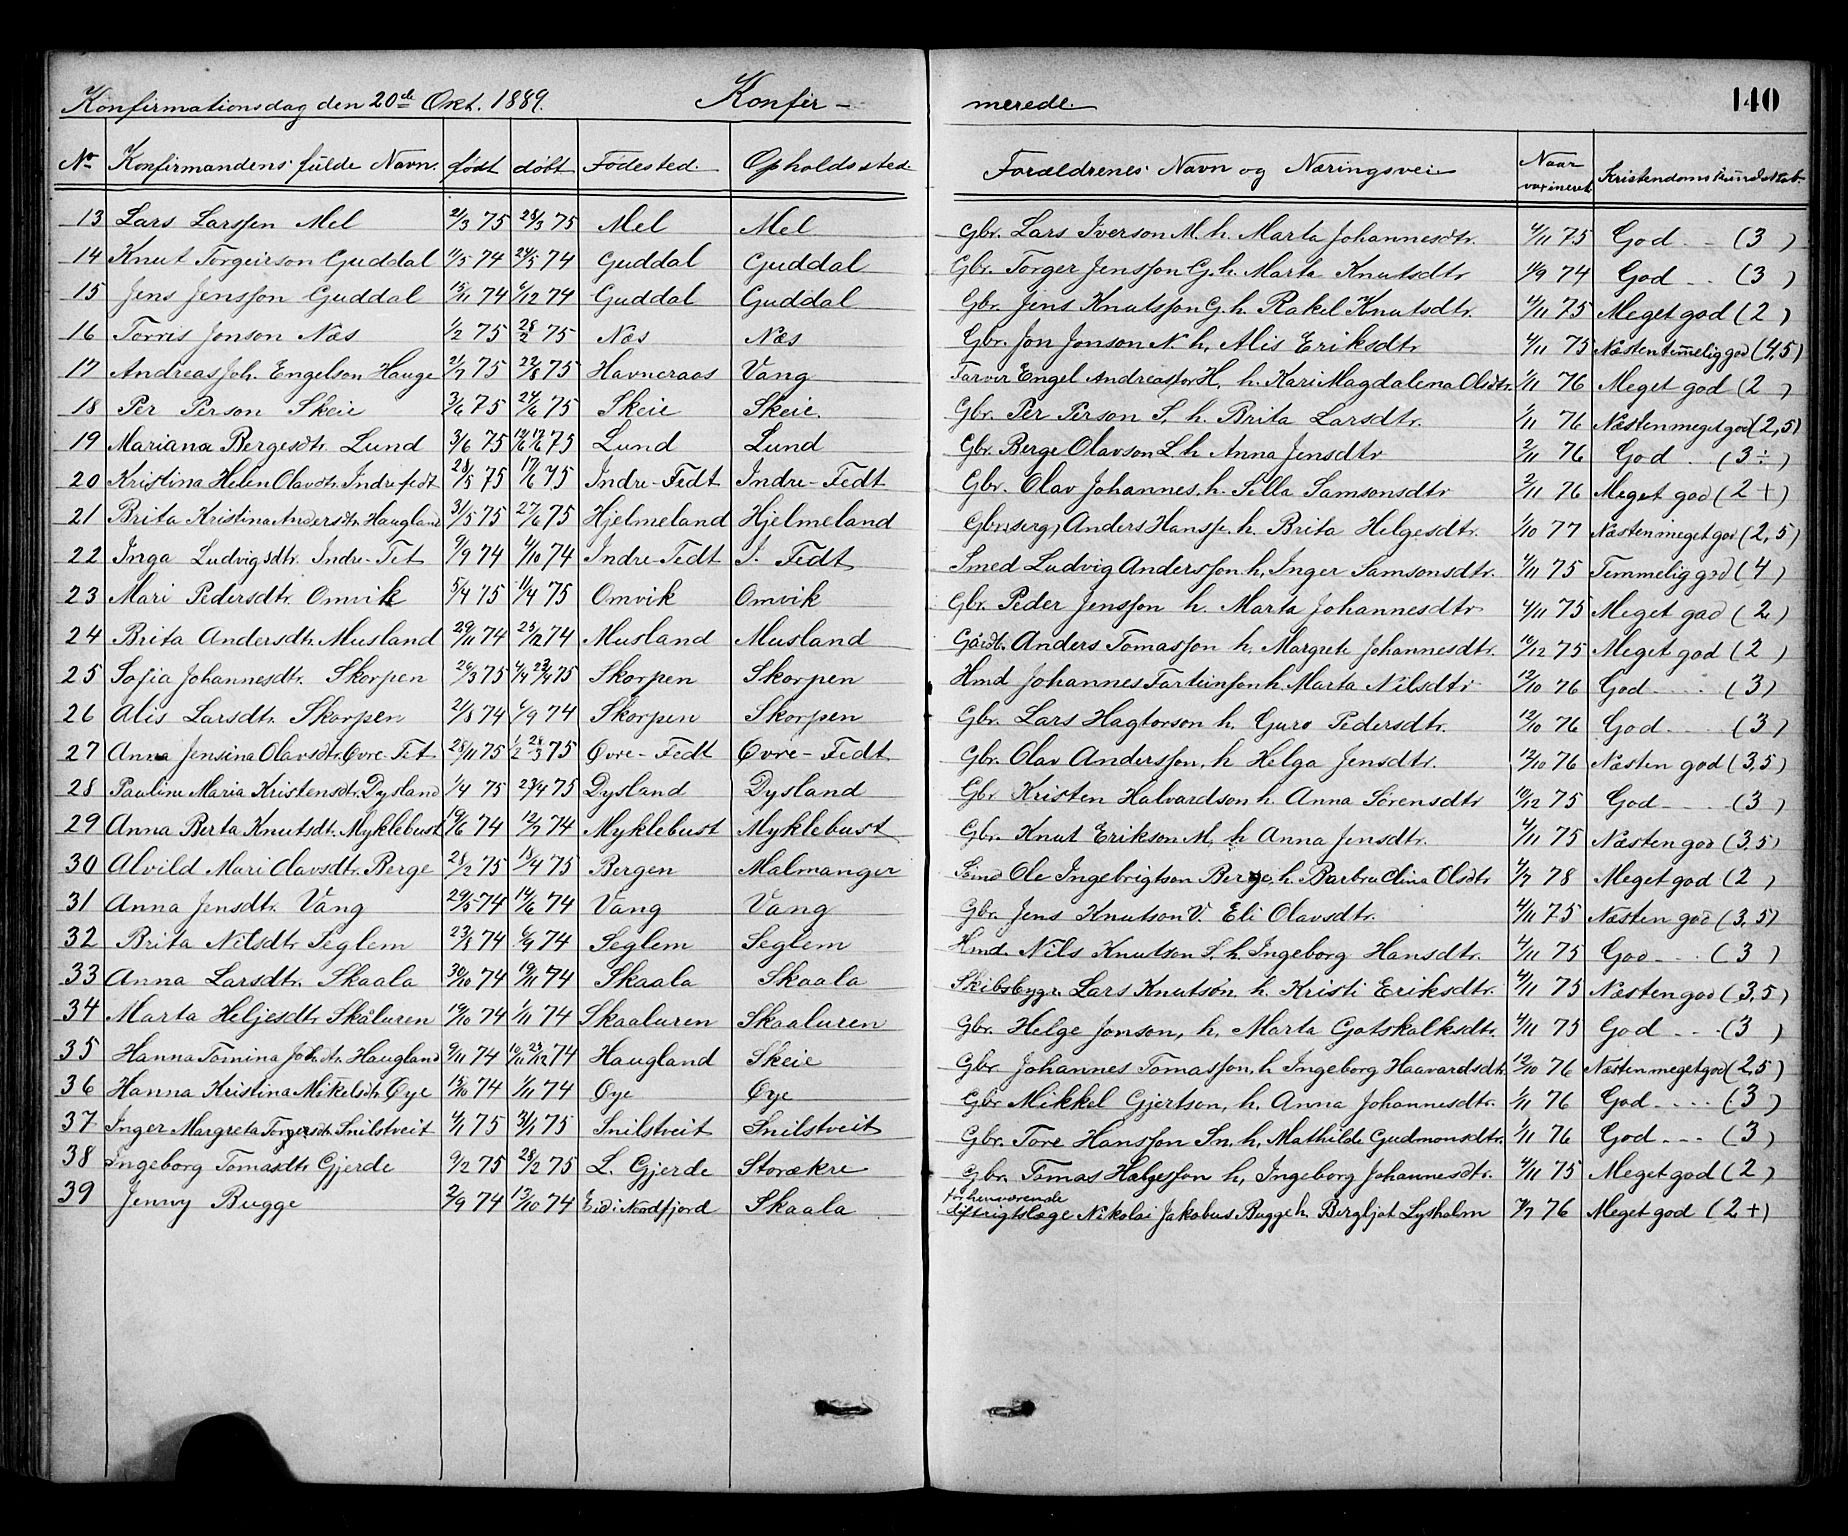 Konfirmationsdag den 20de Okt. 1889. Konfir- merede. 140
No Konfirmandens fulde Navn. født døbt Fødested. Opholdssted. Forældrenes Navn og Næringsvei Naar vaxineret Kristendomskundskab.
13 Lars Larssen Mel 21/3 75 28/3 75 Mel Mel Gbr. Lars Iverson M. h. Marta Johannesdtr. 4/11 75 God (3)
14 Knut Torgeirson Guddal 74 24/5 74 Guddal Guddal Gbr. Torger Jensson G. h. Marta Knutsdtr 74 God (3)
15 Jens Jensson Guddal 15/11 74 6/12 74 Guddal Guddal Gbr. Jens Knutsson G. h. Rakel Knutsdtr. 4/11 75 Meget god (2)
16 Torris Jonson Næs 1/2 75 28/2 75 Næs Næs Gbr. Jon Jonson N. h. Alis Eriksdtr 4/11 75 Næsten temmelig god (4,5)
17 Andreas Joh. Engelson Hauge 21/7 75 22/8 75 Havneraas Vang Farver Engel Andreasson H. h. Kari Magdalena Olsdtr. 1/11 76 Meget god (2)
18 Per Person Skeie 3/6 75 27/6 75 Skeie Skeie. Gbr. Per Person S. h. Brita Larsdtr. 1/11 76 Næsten meget god (2,5)
19 Mariana Bergesdtr. Lund 3/6 75 75 Lund Lund Gbr. Berge Olavson L h. Anna Jensdtr 2/11 76 God (3÷)
20 Kristina Helen Olavsdtr. Indrefedt 28/5 75 17/6 75 Indre-Fedt Indre-Fedt Gbr. Olav Johannes. h. Silla Samsonsdtr 2/11 76 Meget god (2+)
21 Brita Kristina Andersdtr. Haugland 31/5 75 27/6 75 Hjelmeland Hjelmeland Anders Hanss. h. Brita Helgesdtr. 1/10 77 Næsten meget god (2,5)
22 Inga Ludvigsdtr. Indre-Fet 9/9 74 4/10 74 Indre-Fedt I. Fedt Smed Ludvig Andersson h. Inger Samsonsdtr. 4/11 75 Temmelig god (4)
23 Mari Pedersdtr. Omvik 5/4 75 11/4 75 Omvik Omvik Gbr. Peder Jensson h. Marta Johannesdtr 4/11 75 Meget god (2)
24 Brita Andersdtr. Musland 29/11 74 25/12 74 Musland Musland Anders Tomasson h. Margrete Johannesdtr. 10/12 75 Meget god (2)
25 Sofia Johannesdtr. Skorpen 26/3 75 4/4 23/4 75 Skorpen Skorpen Hmd Johannes Farteinson h. Marta Nilsdtr 12/10 76 God (3)
26 Alis Larsdtr. Skorpen 21/8 74 6/9 74 Skorpen Skorpen Gbr. Lars Hagtorson h. Guro Pedersdtr. 12/10 76 God (3)
27 Anna Jensina Olavsdtr. Øvre-Fet 25/11 75 75 Øvre-Fedt Øvre-Fedt Gbr. Olav Andersson, h Helga Jensdtr. 12/10 76 Næsten god (3,5)
28 Pauline Maria Kristensdtr. Dysland 1/4 75 23/4 75 Dysland Dysland Gbr Kristen Halvardson h. Anna Sørensdtr 10/12 75 God (3)
29 Anna Berta Knutsdt. Myklebust 19/6 74 12/7 74 Myklebust Myklebust Gbr. Knut Erikson M. h Anna Jensdtr. 4/11 75 Næsten god (3,5)
30 Alvild Mari Olavsdtr. Berge 28/2 75 18/4 75 Bergen Malmanger Ole Ingebrigtson Berge, h. Barbra Elina Olsdtr 4/7 78 Meget god (2)
31 Anna Jensdtr. Vang 29/5 74 14/6 74 Vang Vang Gbr. Jens Knutson V. Eli Olavsdtr. 4/11 75 Næsten god (3,5)
32 Brita Nilsdtr Seglem 23/8 74 6/9 74 Seglem Seglem Hmd. Nils Knutson S. h Ingeborg Hansdtr. 4/11 75 God (3)
33 Anna Larsdtr. Skaala 30/10 74 19/11 74 Skaala Skaala Skibsbygr. Lars Knutsøn. h. Kristi Eriksdtr. 4/11 75 Næsten god (3,5)
34 Marta Heljesdtr Skåluren 19/10 74 1/11 74 Skaaluren Skaaluren Gbr. Helge Jonson, h. Marta Gotskalksdtr. 4/11 75 God (3)
35 Hanna Tomina Joh.dtr. Haugland 9/11 74 74 Haugland Skeie Gbr. Johannes Tomasson. h Ingeborg Haavardsdtr. 12/10 76 Næsten meget god (2,5)
36 Hanna Kristina Mikelsdtr Øye 15/10 74 1/11 74 Øye Øye Gbr Mikkel Gjertson, h. Anna Johannesdtr. 1/11 76 God (3)
37 Inger Margreta Snilstveit 4/1 75 31/1 75 Snilstveit Snilstveit Gbr. Tore Hansson Sn. h. Mathilde Gudmonsdtr. 1/11 76 God (3)
38 Ingeborg Tomasdtr Gjerde 9/2 75 28/2 75 L. Gjerde Storækre Gbr. Tomas Helgesson h, Ingeborg Johannesdtr. 4/11 75 Meget god (2)
39 Jenny Bugge 2/9 74 13/10 74 Eid i Nordfjord Skaala forhenværende distrigtslæge Nikolai Jakobus Bugge h. Bergljot Lysholm 76 Meget god (2+)